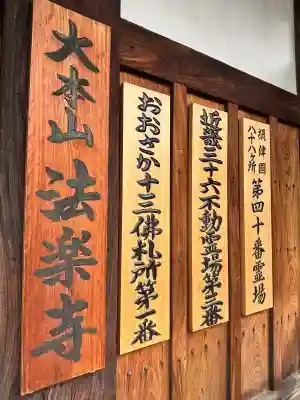 摂津国
八十八ヶ所
第四十番霊場
近畿三十六不動霊場第三番
おおさか十三佛札所第一番
大本山法樂寺